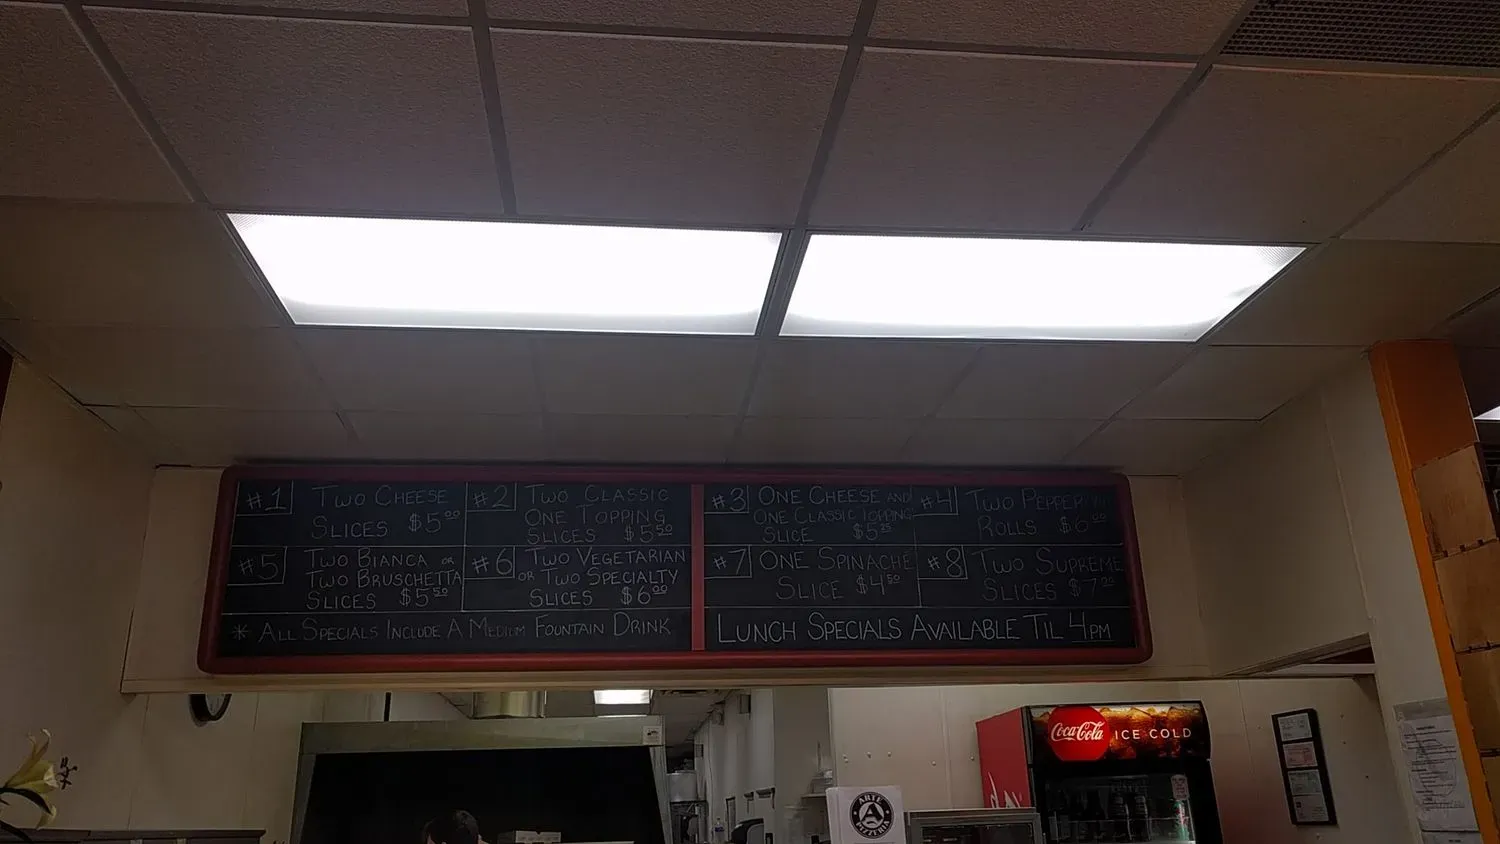 #1 TWO CHEESE
SLICES $5⁰⁰
#2 TWO CLASSIC
ONE TOPPING
SLICES $5⁵⁰
#3 ONE CHEESE AND
ONE CLASSIC TOPPING
SLICE $5²⁵
#4 TWO PEPPERONI
ROLLS $6⁰⁰
#5 TWO BIANCA OR
TWO BRUSCHETTA
SLICES $5⁵⁰
#6 TWO VEGETARIAN
OR TWO SPECIALTY
SLICES $6⁰⁰
#7 ONE SPINACHE
SLICE $4⁵⁰
#8 TWO SUPREME
SLICES $7⁰⁰
* ALL SPECIALS INCLUDE A MEDIUM FOUNTAIN DRINK
LUNCH SPECIALS AVAILABLE TIL 4PM
Coca-Cola ICE COLD
ARTE
A
PIZZERIA